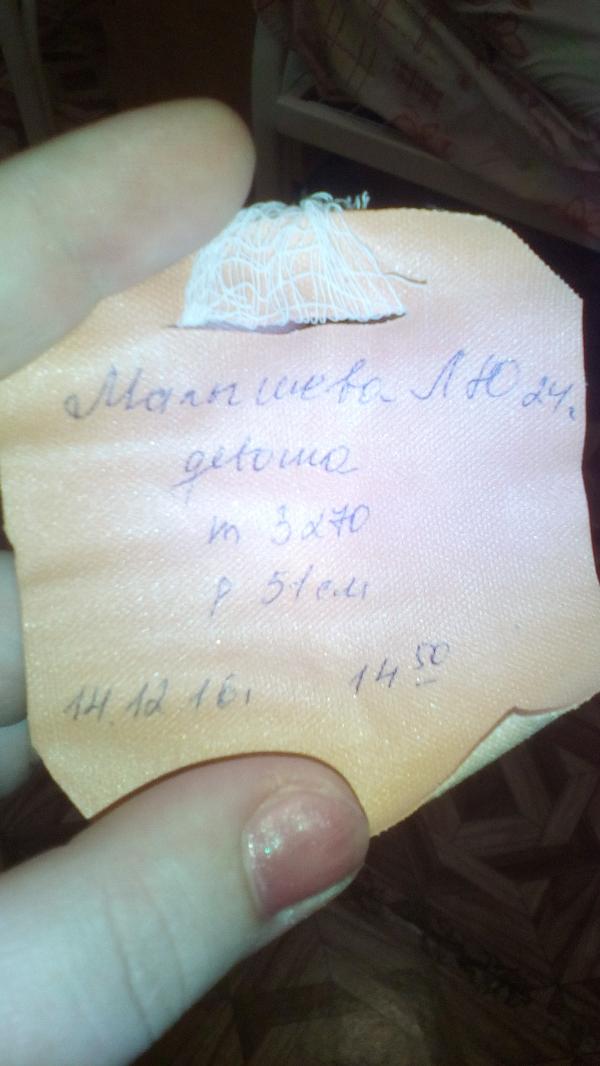 Малышева Л Ю 24г
девочка
m 3270
р 51 см
14.12 16г 14 50